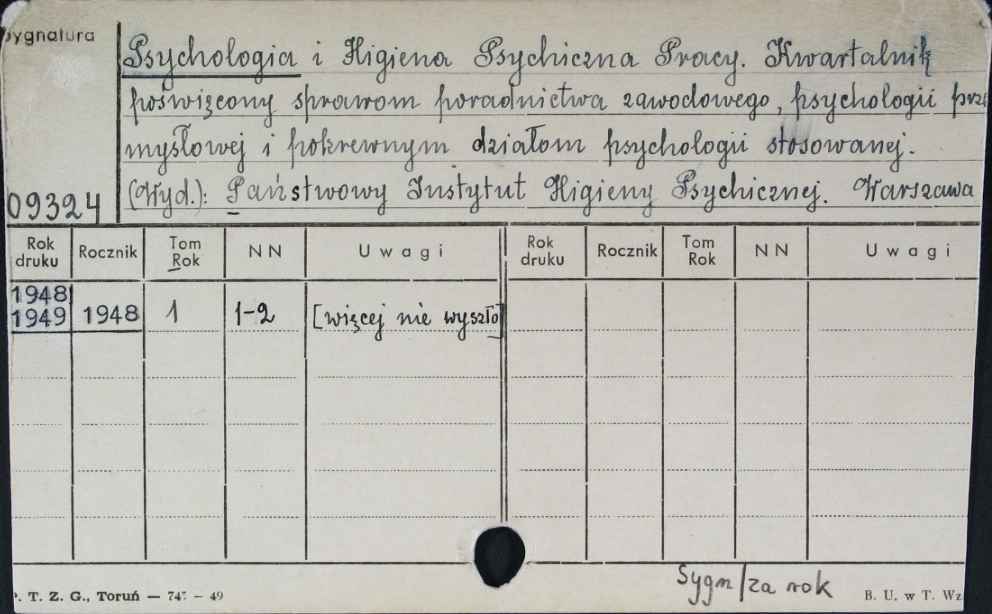 Sygnatura
Psychologia i Higiena Psychiczna Pracy. Kwartalnik
poświęcony sprawom poradnictwa zawodowego, psychologii prze
mysłowej i pokrewnym działom psychologii stosowanej.
(Wyd.): Państwowy Instytut Higieny Psychicznej. Warszawa
09324
Rok druku Rocznik Tom Rok NN Uwagi Rok druku Rocznik Tom Rok NN Uwagi
1948
1949 1948 1 1-2 [więcej nie wyszło]
Sygn/za rok
P. T. Z. G., Toruń — 747 — 49 B. U. w T. Wz